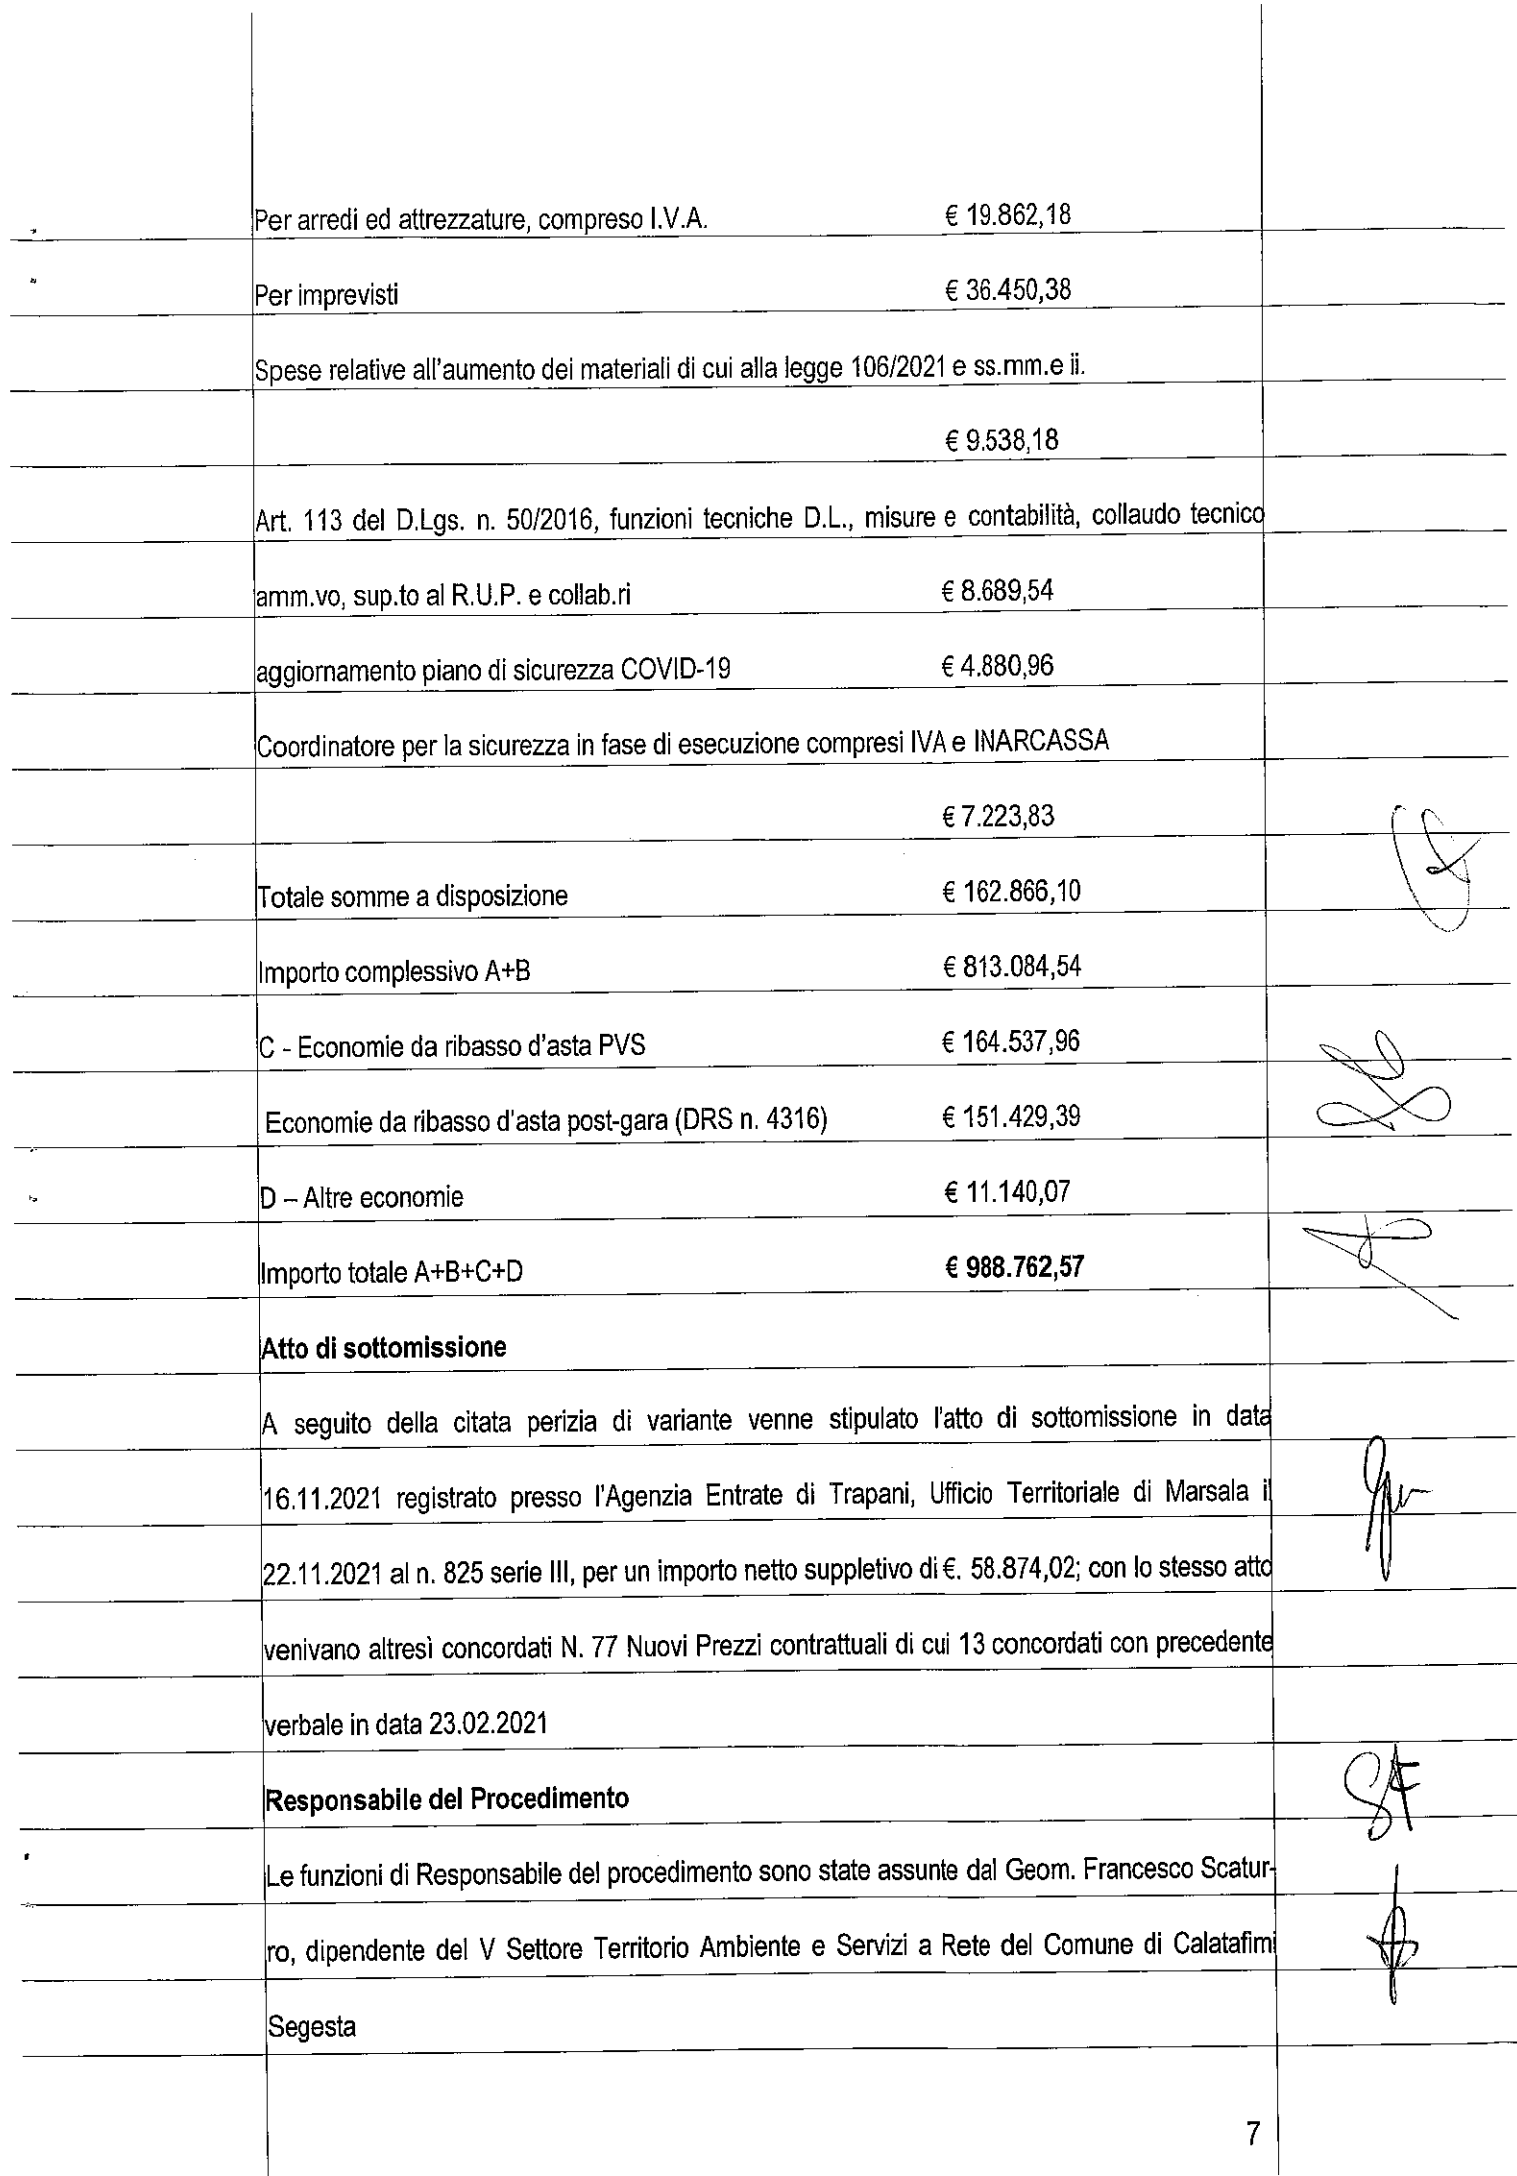 Per arredi ed attrezzature, compreso I.V.A. € 19.862,18
Per imprevisti € 36.450,38
Spese relative all'aumento dei materiali di cui alla legge 106/2021 e ss.mm.e ii.
€ 9.538,18
Art. 113 del D.Lgs. n. 50/2016, funzioni tecniche D.L., misure e contabilità, collaudo tecnico
amm.vo, sup.to al R.U.P. e collab.ri € 8.689,54
aggiornamento piano di sicurezza COVID-19 € 4.880,96
Coordinatore per la sicurezza in fase di esecuzione compresi IVA e INARCASSA
€ 7.223,83
Totale somme a disposizione € 162.866,10
Importo complessivo A+B € 813.084,54
C - Economie da ribasso d'asta PVS € 164.537,96
Economie da ribasso d'asta post-gara (DRS n. 4316) € 151.429,39
D – Altre economie € 11.140,07
Importo totale A+B+C+D € 988.762,57
Atto di sottomissione
A seguito della citata perizia di variante venne stipulato l'atto di sottomissione in data
16.11.2021 registrato presso l'Agenzia Entrate di Trapani, Ufficio Territoriale di Marsala il
22.11.2021 al n. 825 serie III, per un importo netto suppletivo di €. 58.874,02; con lo stesso atto
venivano altresì concordati N. 77 Nuovi Prezzi contrattuali di cui 13 concordati con precedente
verbale in data 23.02.2021
Responsabile del Procedimento
Le funzioni di Responsabile del procedimento sono state assunte dal Geom. Francesco Scatur-
ro, dipendente del V Settore Territorio Ambiente e Servizi a Rete del Comune di Calatafimi
Segesta
7